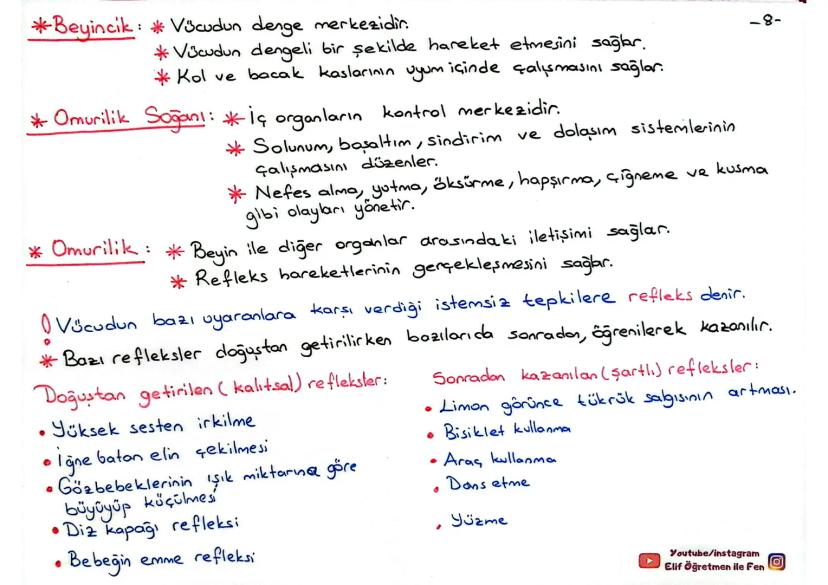 -8-
* Beyincik: * Vücudun denge merkezidir.
* Vücudun dengeli bir şekilde hareket etmesini sağlar.
* Kol ve bacak kaslarının uyum içinde çalışmasını sağlar.
* Omurilik Soğanı: * İç organların kontrol merkezidir.
* Solunum, boşaltım, sindirim ve dolaşım sistemlerinin
çalışmasını düzenler.
* Nefes alma, yutma, öksürme, hapşırma, çiğneme ve kusma
gibi olayları yönetir.
* Omurilik: * Beyin ile diğer organlar arasındaki iletişimi sağlar.
* Refleks hareketlerinin gerçekleşmesini sağlar.
! Vücudun bazı uyaranlara karşı verdiği istemsiz tepkilere refleks denir.
* Bazı refleksler doğuştan getirilirken bazılarıda sonradan, öğrenilerek kazanılır.
Doğuştan getirilen (kalıtsal) refleksler:
• Yüksek sesten irkilme
• İğne batan elin çekilmesi
• Gözbebeklerinin ışık miktarına göre
büyüyüp küçülmesi
• Diz kapağı refleksi
• Bebeğin emme refleksi
Sonradan kazanılan (şartlı) refleksler:
• Limon görünce tükrük salgısının artması.
• Bisiklet kullanma
• Araç kullanma
• Dans etme
• Yüzme
Youtube/instagram
Elif Öğretmen ile Fen